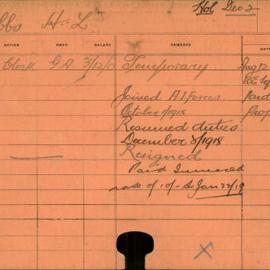 H. L. Hol Dec 2
OFFICE DEPT. SALARY REMARKS
Clerk G.A 3/12/0 Temporary Aug 12
Joined A.I. Forces Paid
October 1918
Resumed duties
December 8/1918
Resigned
Paid Increased
rate of 10/- to Jan 22/19
X